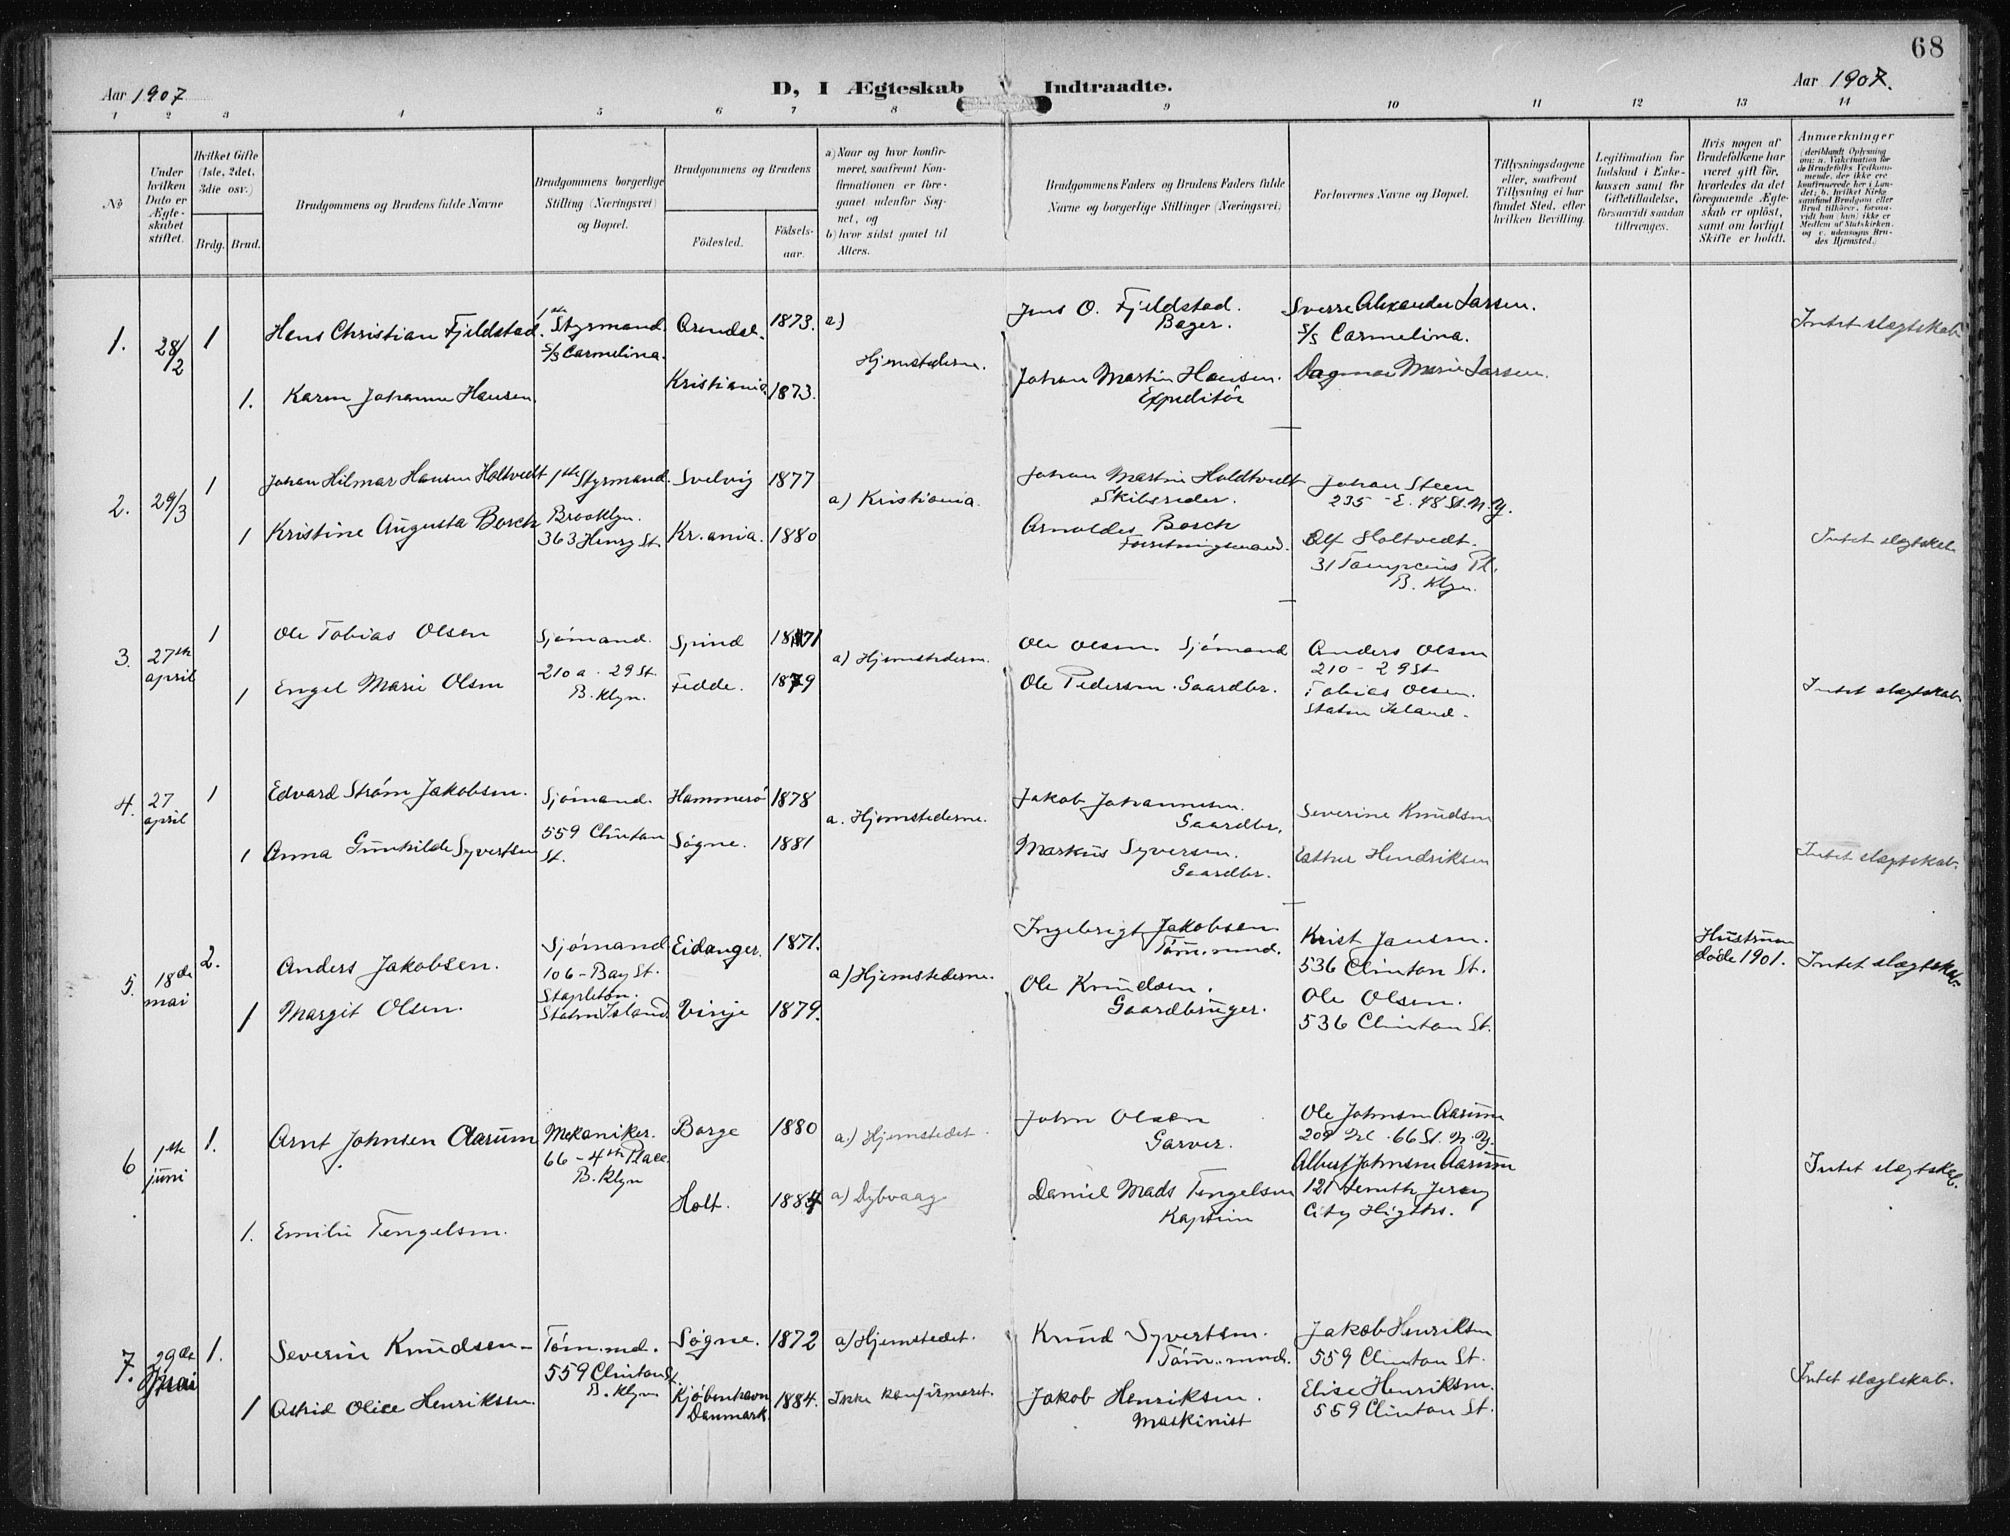 68
Aar 1907
D, I Ægteskab Indtraadte.
Aar 1907.
1 2 3 4 5 6 7 8 9 10 11 12 13 14
No
Under
hvilken
Dato er
Ægte-
skabet
stiftet.
Hvilket Gifte
(1ste, 2det,
3die osv.)
Brdg. Brud.
Brudgommens og Brudens fulde Navne
Brudgommens borgerlige
Stilling (Næringsvei)
og Bopæl.
Brudgommens og Brudens
Fødested.
Fødsels-
aar.
a) Naar og hvor konfir-
meret, saafremt Kon-
firmationen er fore-
gaaet udenfor Sog-
net, og
b) hvor sidst gaaet til
Alters.
Brudgommens Faders og Brudens Faders fulde
Navne og borgerlige Stillinger (Næringsvei)
Forlovernes Navne og Bopæl.
Tillysningsdagene
eller, saafremt
Tillysning ei har
fundet Sted, efter
hvilken Bevilling.
Legitimation for
Indskud i Enke-
kassen samt for
Giftetilladelse,
forsaavidt saadan
tiltrænges.
Hvis nogen af
Brudefolkene har
været gift før,
hvorledes da det
foregaaende Ægte-
skab er opløst,
samt om lovligt
Skifte er holdt.
Anmærkninger
(deriblandt Oplysning
om: a. Vakcination for
de Brudefolks Vedkom-
mende, der ikke ere
konfirmerede her i Lan-
det; b. hvilket Kirke-
samfund Brudgom eller
Brud tilhører, forsaa-
vidt han (hun) ikke er
Medlem af Statskirken,
og c. udensogns Bru-
des Hjemsted.)
1. 28/2 1 Hans Christian Fjeldstad. 1ste Styrmand. Arendal. 1873. a)
S/S Carmelina.
Hjemstederne.
1. Karen Johanne Hansen. Kristiania 1873.
Jens O. Fjeldstad.
Bager.
Johan Martin Hansen.
Expeditör
Sverre Alexander Larsen.
S/S Carmelina.
Dagmar Marie Larsen.
Intet slægtskab.
2. 29/3 1 Johan Hilmar Hansen Holtvedt 1ste Styrmand. Svelvig 1877
a) Kristiania.
Brooklyn.
1 Kristine Augusta Borch 363 Henry St. Kr.ania. 1880
Johan Martin Holdtvedt
Skibsreder.
Arnoldes Borch
Forretningsmand.
Johan Steen
235 - E. 48 St. N.Y.
Alf Holtvedt.
31 Pl.
B. Klyn.
Intet slægtskab
3. 27th april 1 Ole Tobias Olsen Sjömand. Spind 1871
a) Hjemstederne.
210 a. 29 St.
B. Klyn.
1 Engel Marie Olsen Fedde. 1879
Ole Olsen. Sjömand
Ole Pedersen. Gaardbr.
Anders Olsen
210 - 29 St
Tobias Olsen.
Staten Island.
Intet slægtskab.
4. 27 april 1 Edvard Strøm Jakobsen. Sjömand. Hammerö 1878
a. Hjemstederne.
559 Clinton
St.
1 Anna Gunhilde Syvertsen Søgne. 1881
Jakob Johannesen.
Gaardbr.
Markus Syversen.
Gaardbr.
Severine Knudsen
Esther Hendriksen
Intet slægtskab.
5. 18de mai 2. Anders Jakobsen. Sjömand Eidanger. 1871.
106 - Bay St.
Stapleton.
Staten Island.
a) Hjemstederne.
1 Margit Olsen. Vinje 1879.
Ingebrigt Jakobsen
Töm.mnd.
Ole Knudsen.
Gaardbruger.
Krist Jansen.
536 Clinton St.
Ole Olsen.
536 Clinton St.
Hustruen
døde 1901.
Intet slægtskab.
6 1ste juni 1. Arnt Johnsen Aarum Mekaniker. Borge 1880 a.) Hjemstedet.
66 - 4th Place.
B. Klyn
1. Emilie Tengelsen. Holt. 1884 a) Dybvaag
John Olsen
Garver.
Daniel Mads Tengelsen
Kaptein
Ole Johnsen Aarum
209 W. 66 St. N.Y.
Albert Johnsen Aarum
121 Jersey
City Hights.
Intet slægtskab.
7. 29de mai 1. Severin Knudsen - Töm.md. Søgne. 1872 a) Hjemstedet.
559 Clinton St.
B. Klyn
1 Astrid Olice Henriksen. Kjøbenhavn 1884. Ikke konfirmeret.
Danmark.
Knud Syvertsen.
Töm.mnd.
Jakob Henriksen.
Maskinist
Jakob Henriksen
559 Clinton St.
Elise Henriksen.
559 Clinton St.
Intet slægtskab.